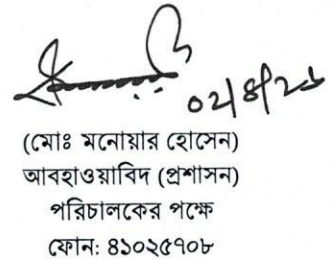 ০২/৪/২৬
(মোঃ মনোয়ার হোসেন)
আবহাওয়াবিদ (প্রশাসন)
পরিচালকের পক্ষে
ফোন: ৪১০২৫৭০৮